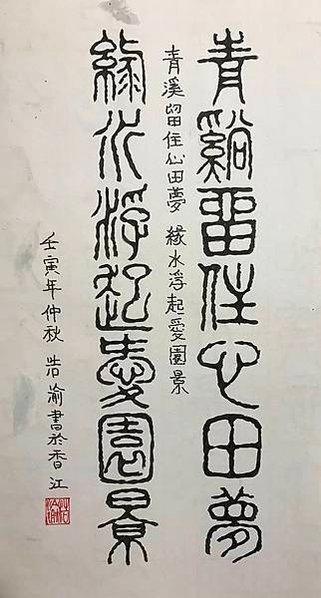 青谿留住心田夢
青溪留住心田夢 緣水浮起愛園景
緣水浮起愛園景
壬寅年仲秋 浩渝書於香江